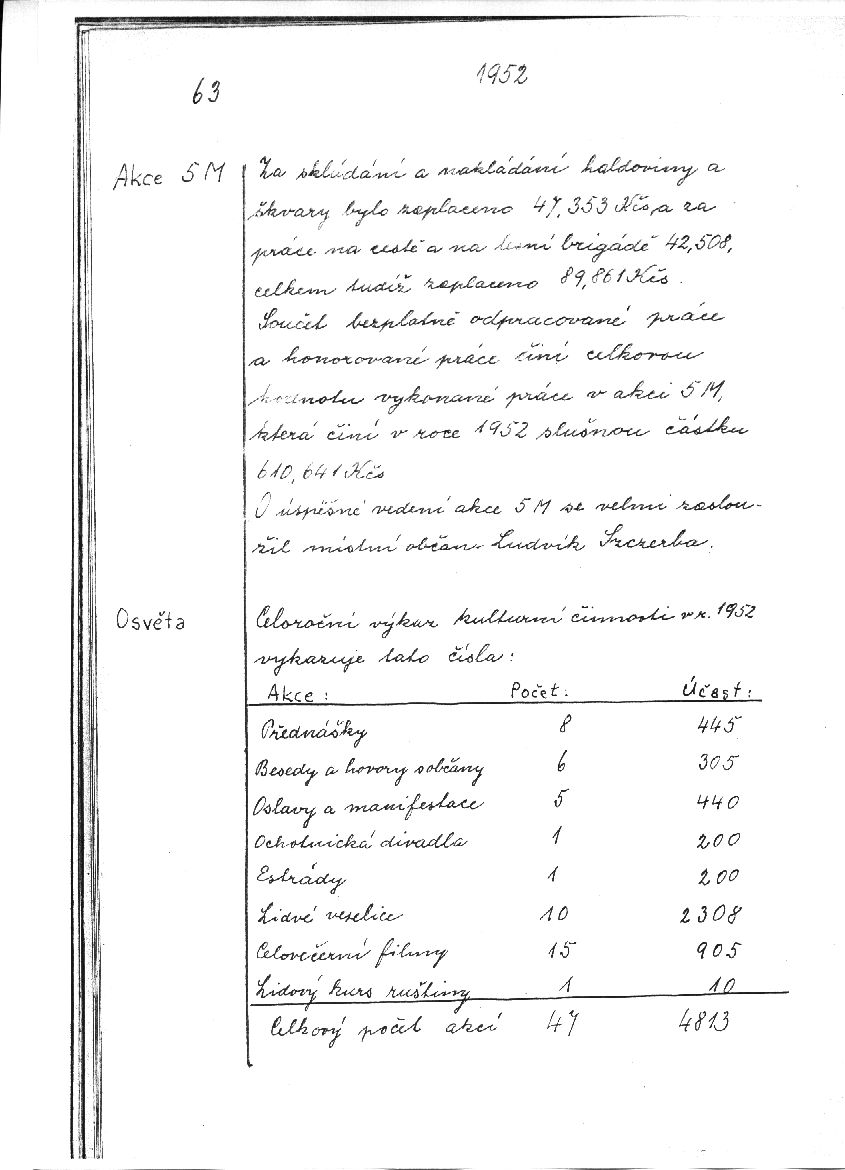 1952
63
Akce 5M
Za skládání a nakládání haldoviny a
škvary bylo zaplaceno 47,353 Kčs, a za
práce na cestě a na lesní brigádě 42,508,
celkem tudíž zaplaceno 89,861 Kčs.
Součet bezplatně odpracované práce
a honorované práce činí celkovou
hodnotu vykonané práce v akci 5M,
která činí v roce 1952 slušnou částku
610,641 Kčs
O úspěšné vedení akce 5M se velmi zaslou-
žil místní občan Ludvík Szczerba.
Osvěta
Celoroční výkaz kulturní činnosti v r. 1952
vykazuje tato čísla:
Akce: Počet: Účast:
Přednášky 8 445
Besedy a hovory s občany 6 305
Oslavy a manifestace 5 440
Ochotnická divadla 1 200
Estrády 1 200
Lidvé veselice 10 2308
Celovečerní filmy 15 905
Lidový kurs ruštiny 1 10
Celkový počet akcí 47 4813